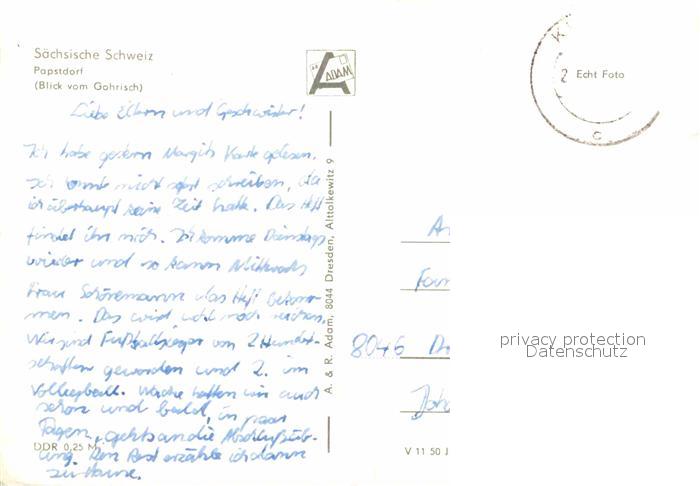 Sächsische Schweiz
Papstdorf
(Blick vom Gohrisch)
ADAM
K
2 Echt Foto
C
Liebe Eltern und Geschwister!
Ich habe gestern Margits Karte gelesen.
Ich konnte nicht sofort schreiben, da
ich überhaupt keine Zeit hatte. Das Heft
findet ihr nich. Ich komme Dienstags
wieder und so kann Mittwochs
Frau Schönemann das Heft bekom-
men. Das wird wohl noch reichen.
Wir sind Fußballsieger von 2 Hundert-
schaften geworden und 2. im
Volleyball. Wache hatten wir auch
schon und bald, in paar
Tagen, gehts an die Abschlußüb-
ung. Den Rest erzähle ich dann
zu Hause.
DDR 0,25 M
A. & R. Adam, 8044 Dresden, Alttolkewitz 9
An
Fam
8046 Dr
Joh
V 11 50 J
privacy protection
Datenschutz